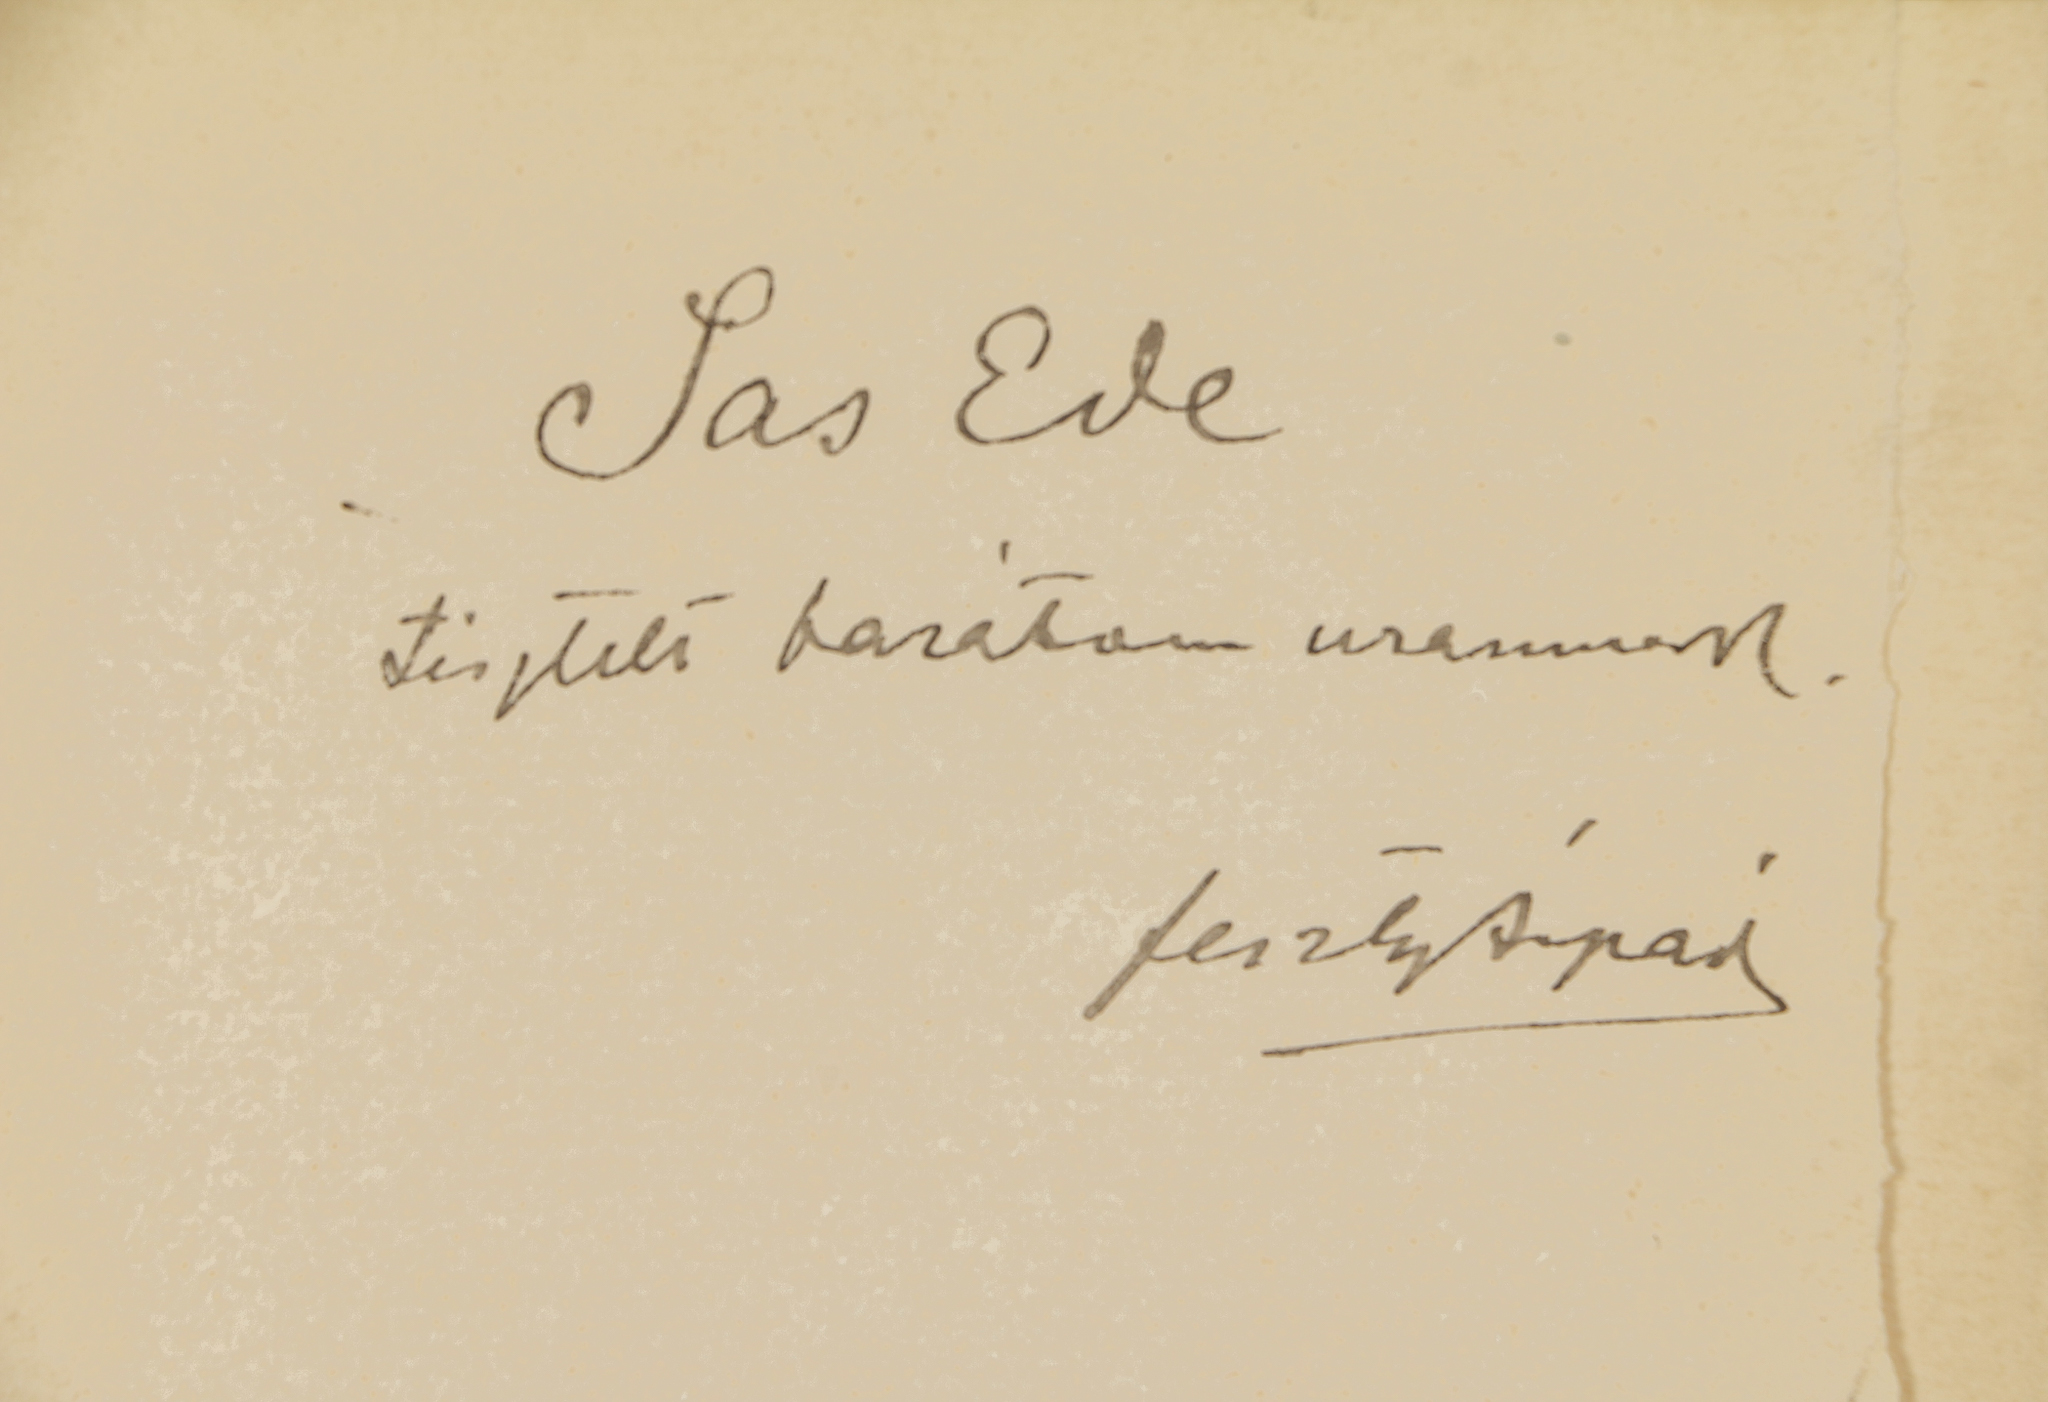 Sas Ede
tisztelt barátom uramnak.
Feszty Árpád